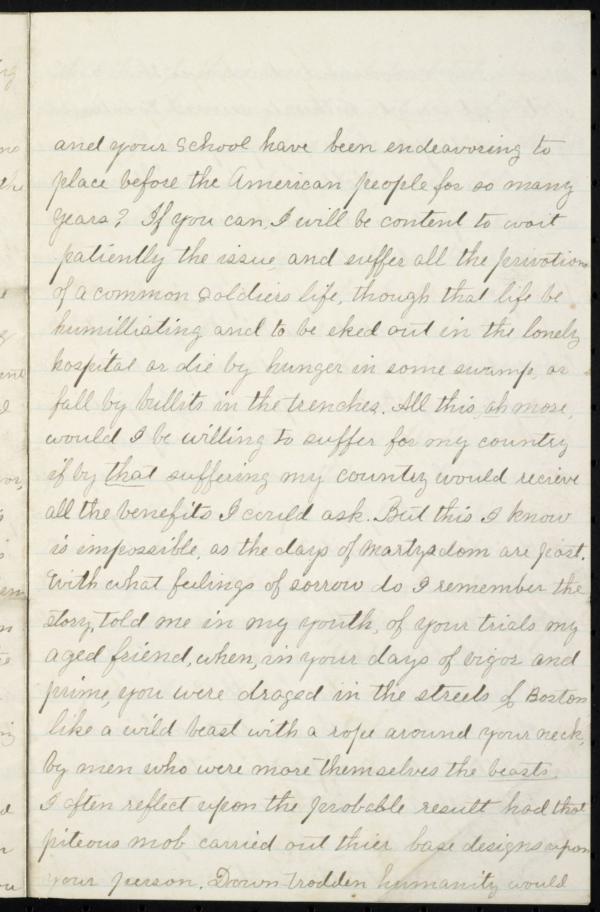 and your School have been endeavoring to
place before the American people for so many
years? If you can, I will be content to wait
patiently the issue and suffer all the privations
of a common Soldiers life, though that life be
humilliating and to be eked out in the lonely
hospital or die by hunger in some swamp, or
fall by bullits in the trenches. All this, ah more,
would I be willing to suffer for my country
if by that suffering my country would recieve
all the benefits I could ask. But this I know
is impossible, as the days of martyrdom are past.
With what feelings of sorrow do I remember the
story, told me in my youth, of your trials my
aged friend, when, in your days of vigor and
prime, you were draged in the streets of Boston
like a wild beast with a rope around your neck,
by men who were more themselves the beasts.
I often reflect upon the probable result had that
piteous mob carried out thier base designs upon
your person. Down trodden humanity would